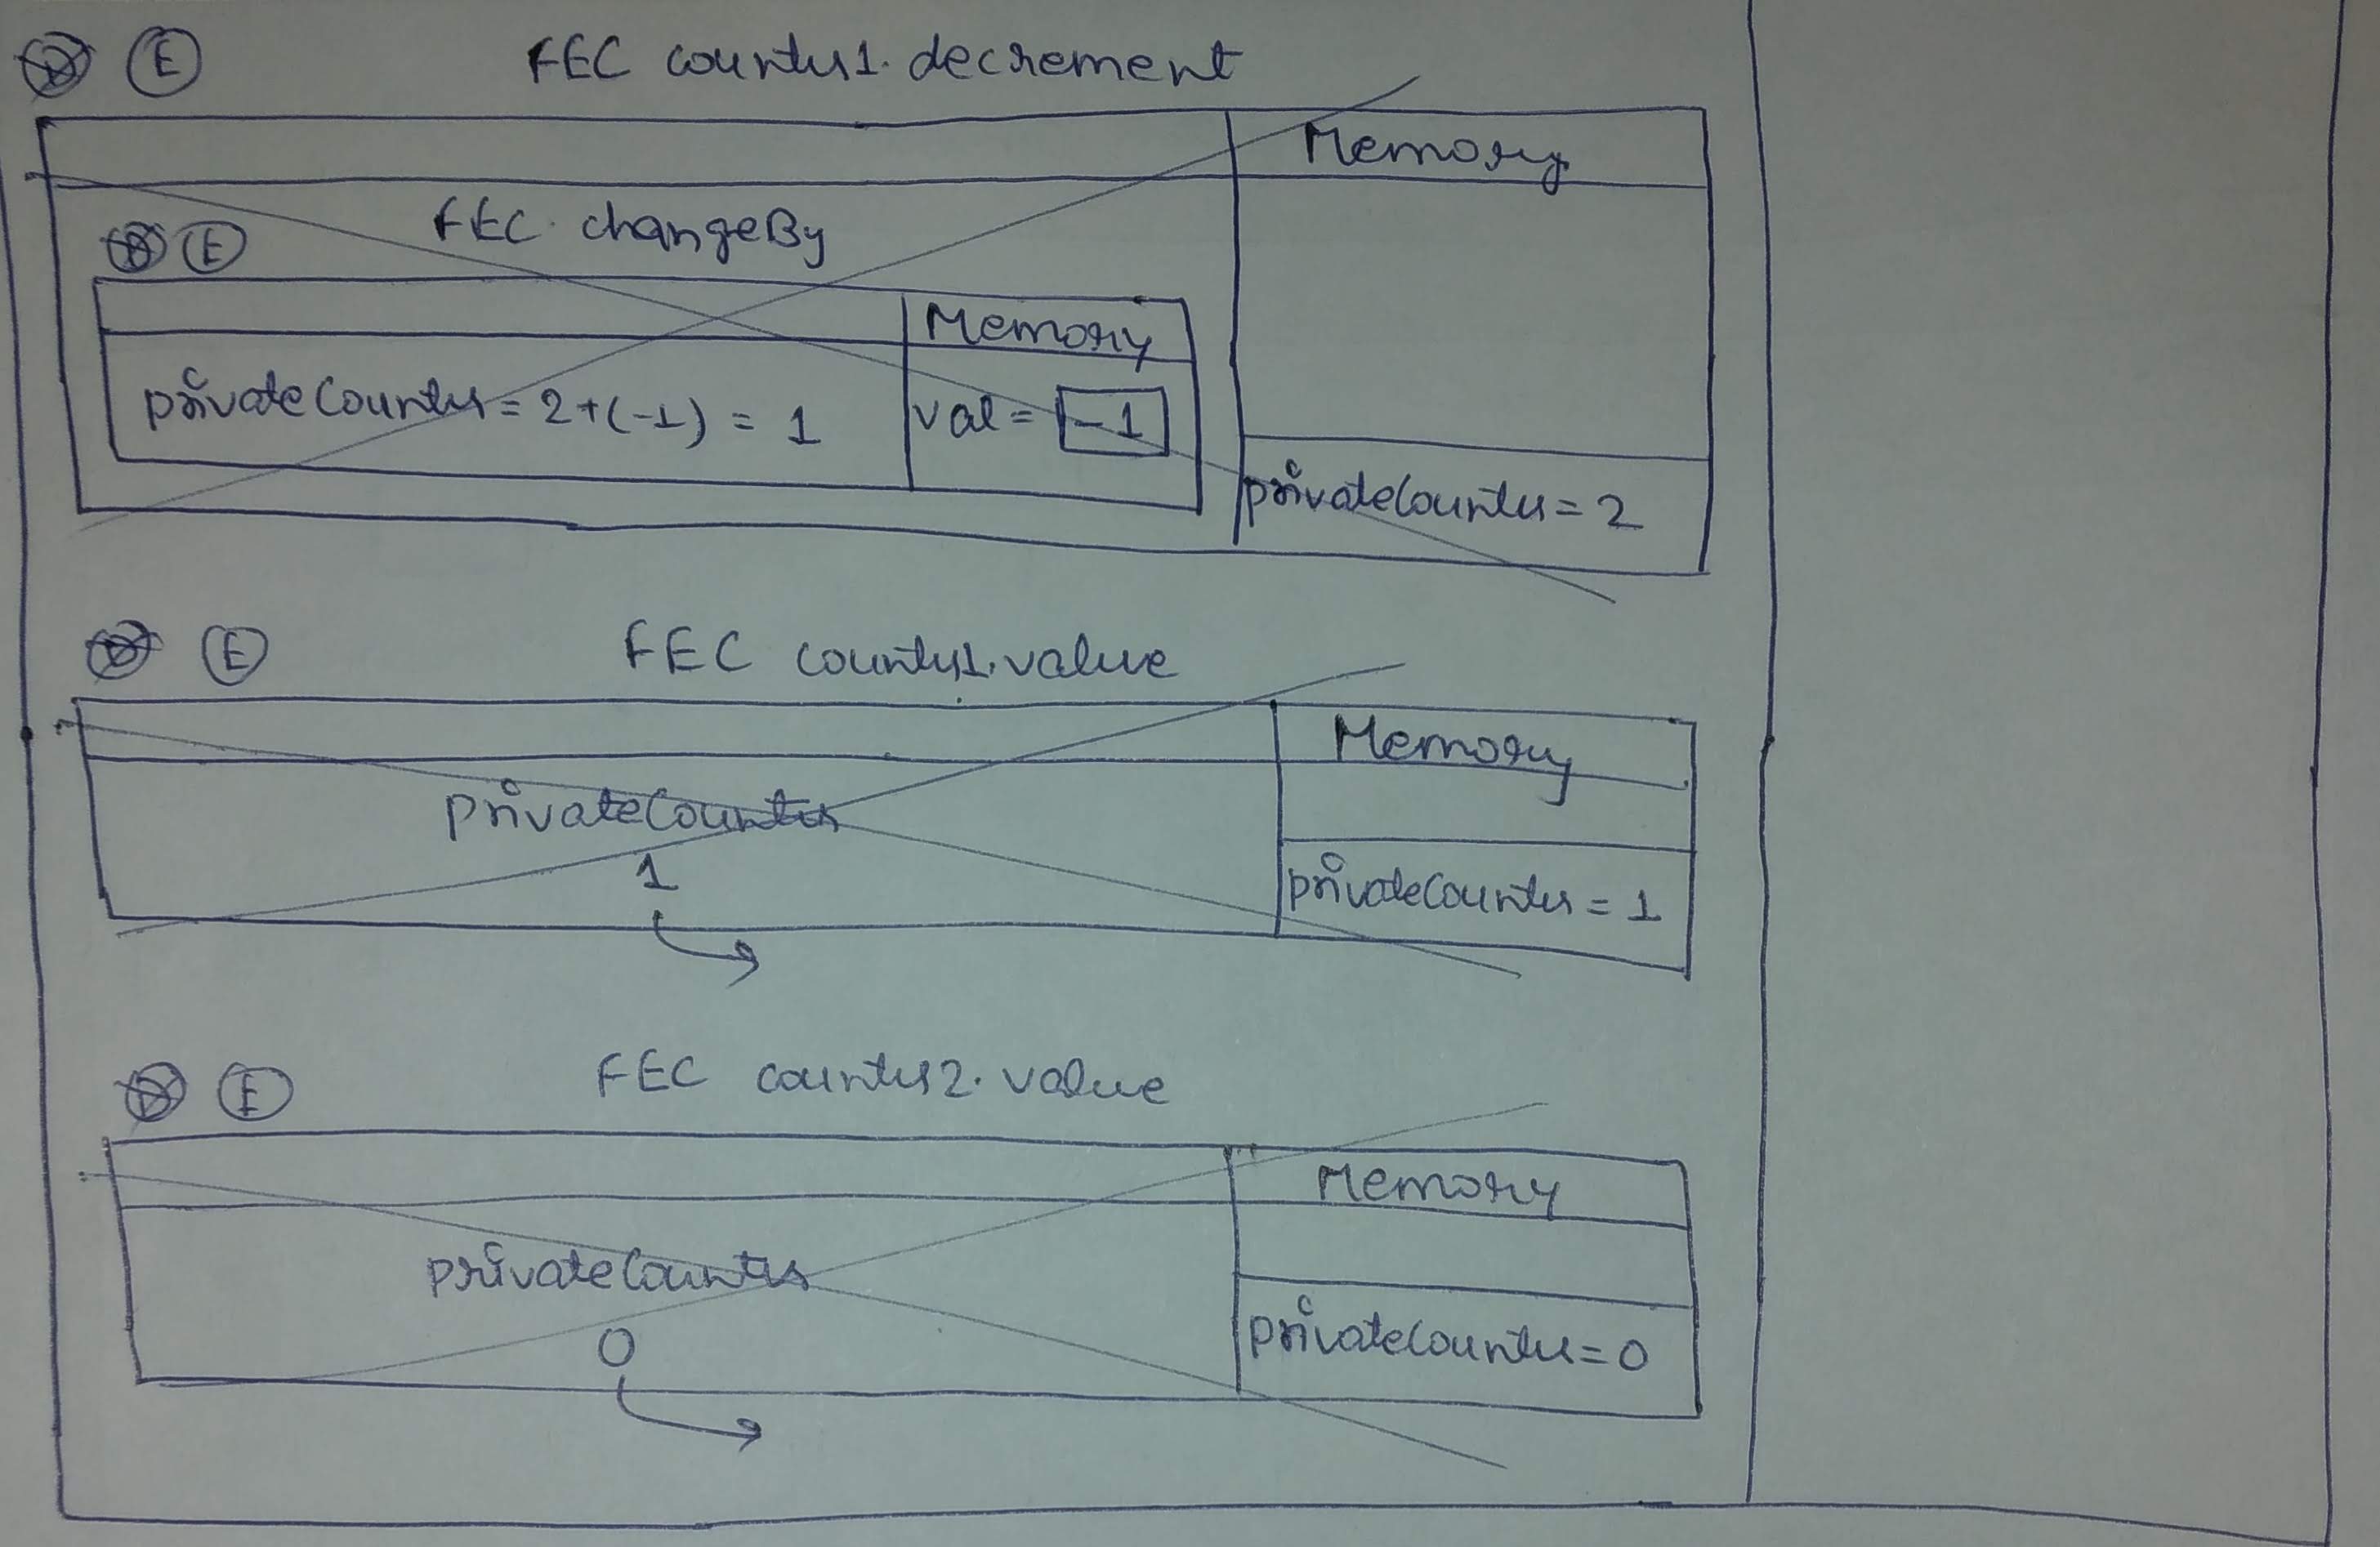 E FEC counter1. decrement
Memory
E FEC. changeBy
Memory
privateCounter = 2+(-1) = 1
val = -1
privateCounter = 2
E FEC counter1. value
Memory
privateCounter
1
privateCounter = 1
E FEC counter2. value
Memory
privateCounter
0
privateCounter = 0